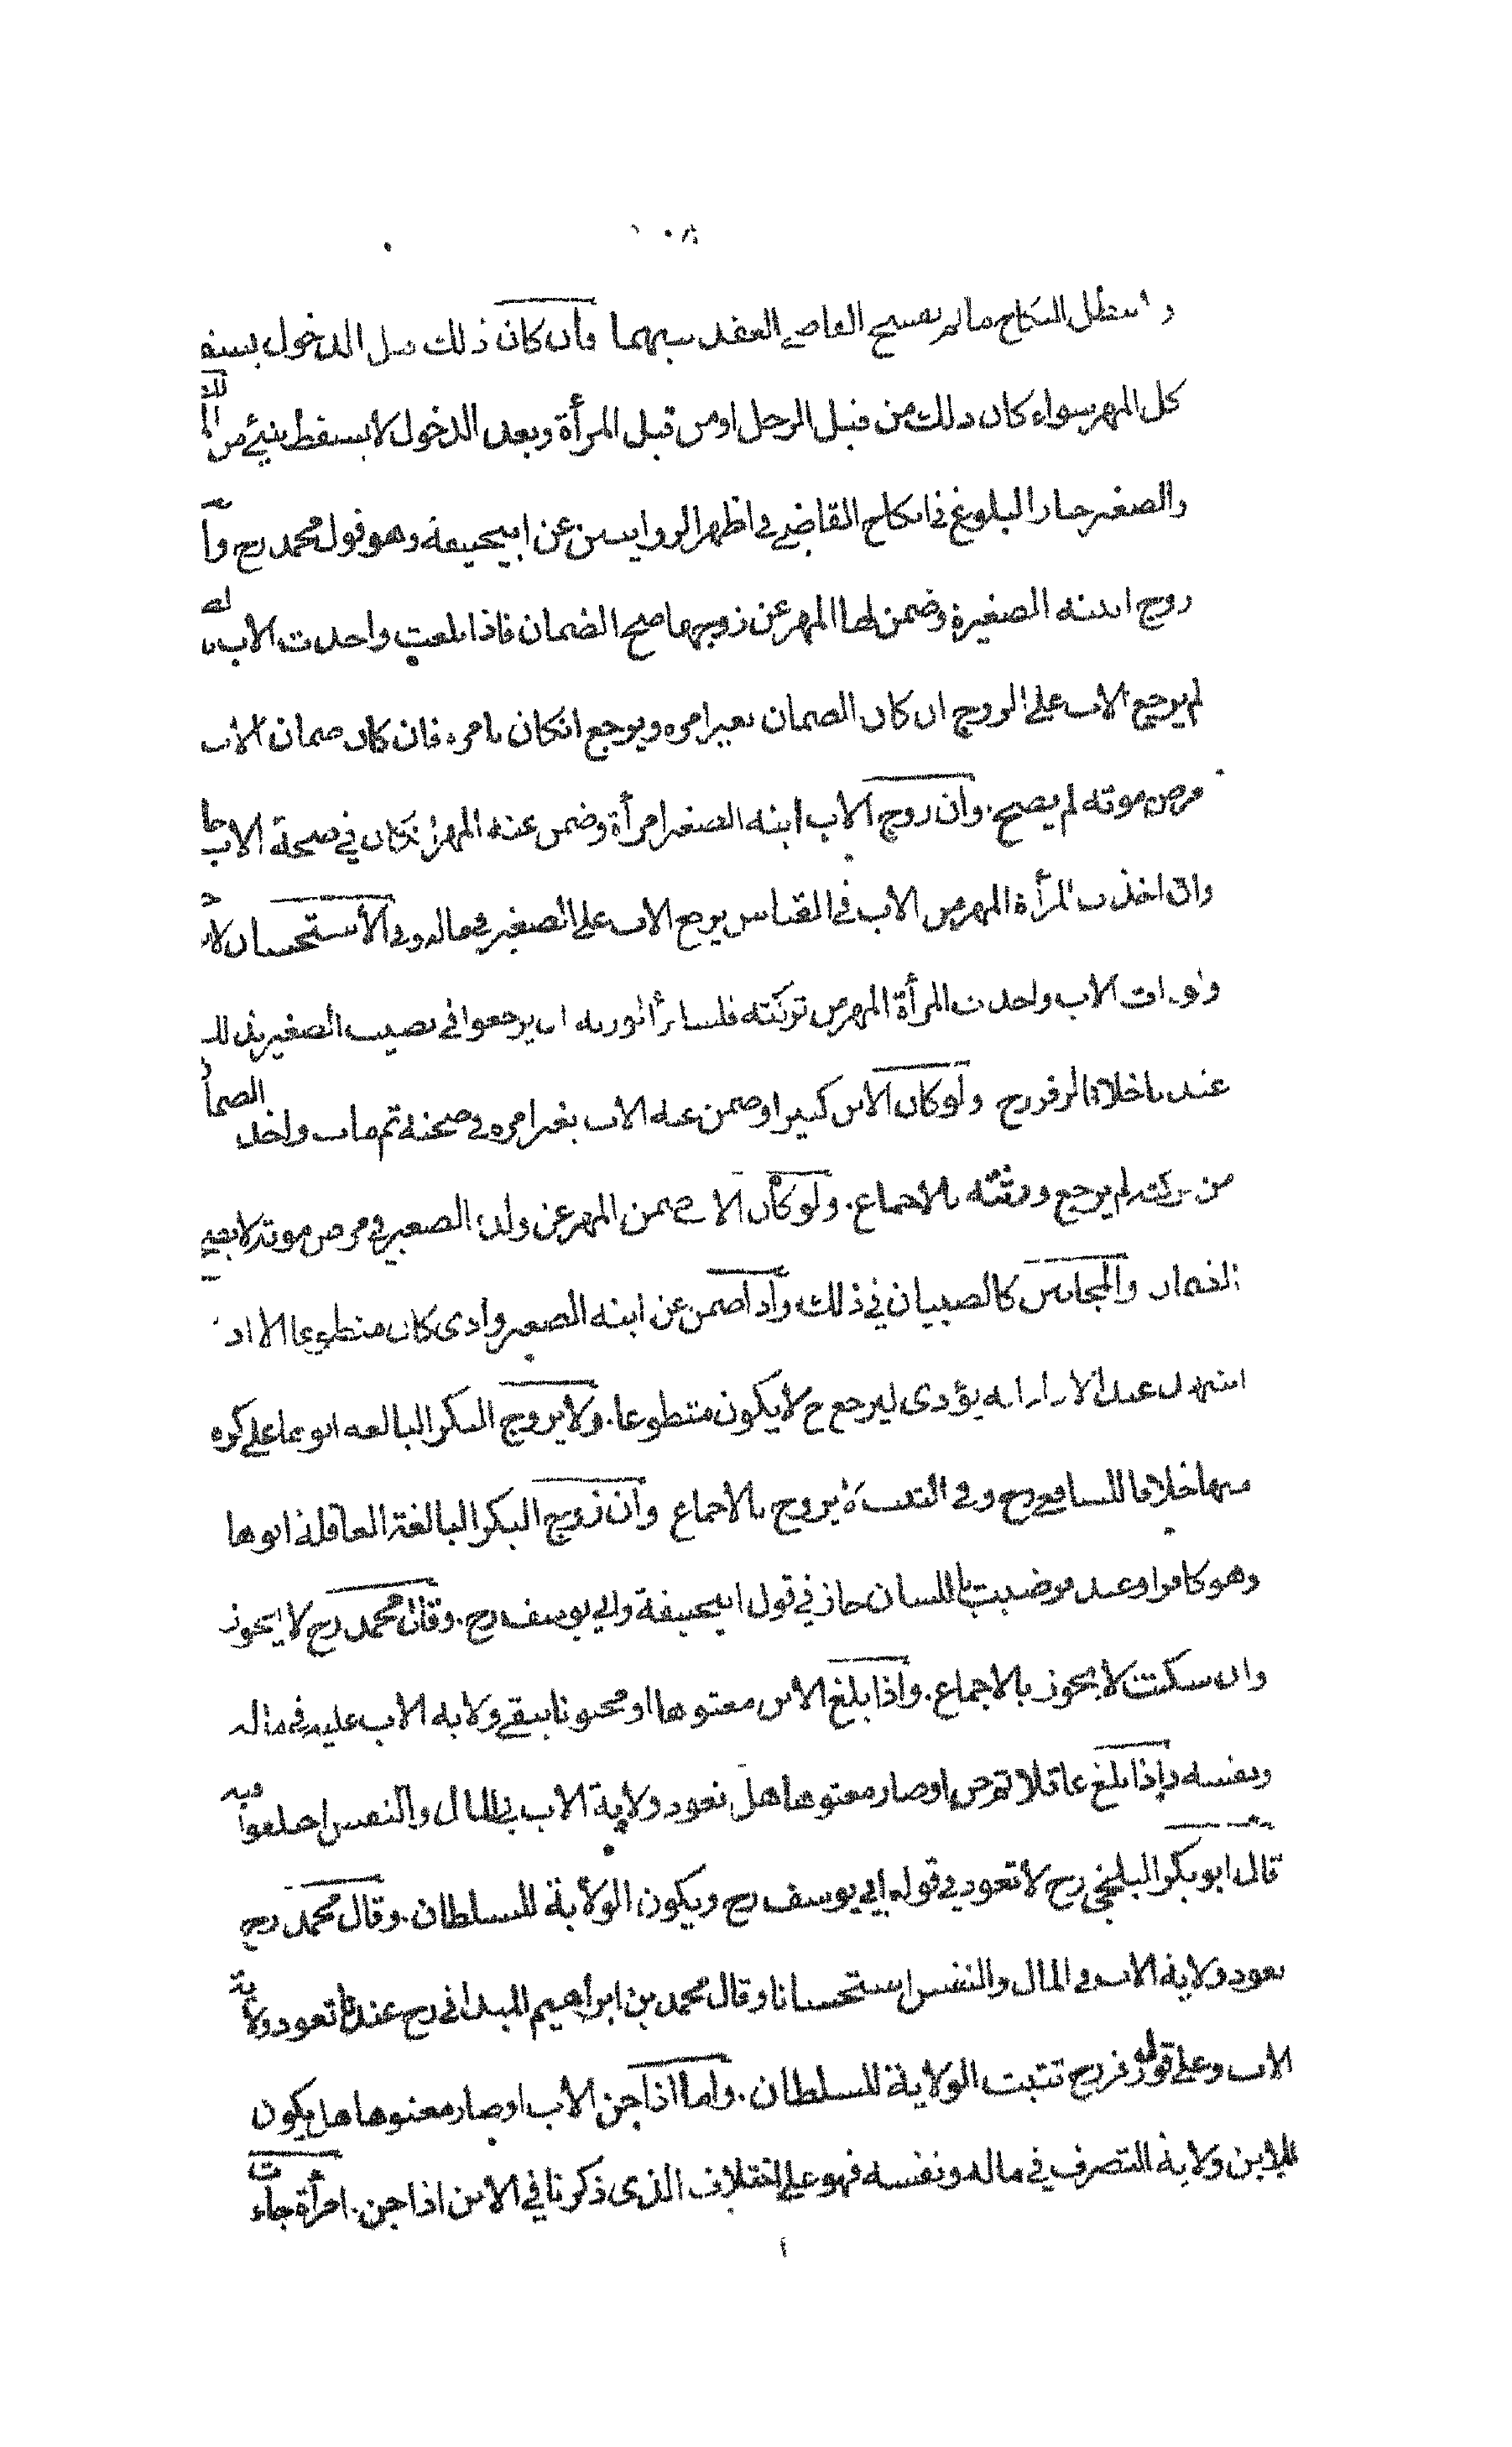 ١٠٨
النكاح ما لم يفسخ القاضي العقد بينهما وان كان ذلك قبل الدخول يسقط
كل المهر سواء كان ذلك من قبل الرجل او من قبل المرأة وبعد الدخول لا يسقط شئ من
والصغير خيار البلوغ في انكاح القاضي في اظهر الروايتين عن ابيحنيفة وهو قول محمد رح
زوج ابنته الصغيرة وضمن لها المهر عن زوجها صح الضمان فاذا بلغت واخذت الاب
لم يرجع الاب على الزوج ان كان الضمان بغير امره ويرجع انكان بامره فان كان ضمان الاب
مرض موته لم يصح. وان زوج الاب ابنه الصغير امرأة وضمن عنه المهر انكان في صحة الاب جا
وان اخذت المرأة المهر من الاب في القياس يرجع الاب على الصغير في ماله وفي الاستحسان لا
ولو مات الاب واخذت المرأة المهر من تركته فلسائر الورثة ان يرجعوا في نصيب الصغير بذلك
عندنا خلافا لزفر رح ولو كان الابن كبيرا وضمن عنه الاب بغير امره في صحته ثم مات واخذ الضما
من تركته لم يرجع ورثته بالاجماع. ولو كان الاب ضمن المهر عن ولده الصغير في مرض موته لا يصح
الضمان والمجانين كالصبيان في ذلك واذا ضمن عن ابنه الصغير وادى كان متطوعا الا اذا
اشهد عند الاداء انه يؤدى ليرجع ح لا يكون متطوعا. ولا يزوج البكر البالغه ابوها على كره
منها خلافا للشافعي رح وفي الثيب لا يزوج بالاجماع وان زوج البكر البالغة العاقلة ابوها
وهو كافر او عبد فرضيت باللسان جاز في قول ابيحنيفة وابي يوسف رح. وقال محمد رح لا يجوز
وان سكتت لا يجوز بالاجماع. واذا بلغ الابن معتوها او مجنونا يبقى ولاية الاب عليه في ماله
ونفسه واذا بلغ عاقلا ثم جن او صار معتوها هل تعود ولاية الاب في المال والنفس اختلفوا فيه
قال ابو بكر البلخي رح لا تعود في قول ابي يوسف رح ويكون الولاية للسلطان. وقال محمد رح
تعود ولاية الاب في المال والنفس استحسانا وقال محمد بن ابراهيم الميداني رح عندنا تعود ولاية
الاب وعلى قول زفر رح تثبت الولاية للسلطان. واما اذا جن الاب او صار معتوها هل يكون
للابن ولاية التصرف في ماله ونفسه فهو على اختلاف الذى ذكرنا في الابن اذا جن. امرأة جاءت